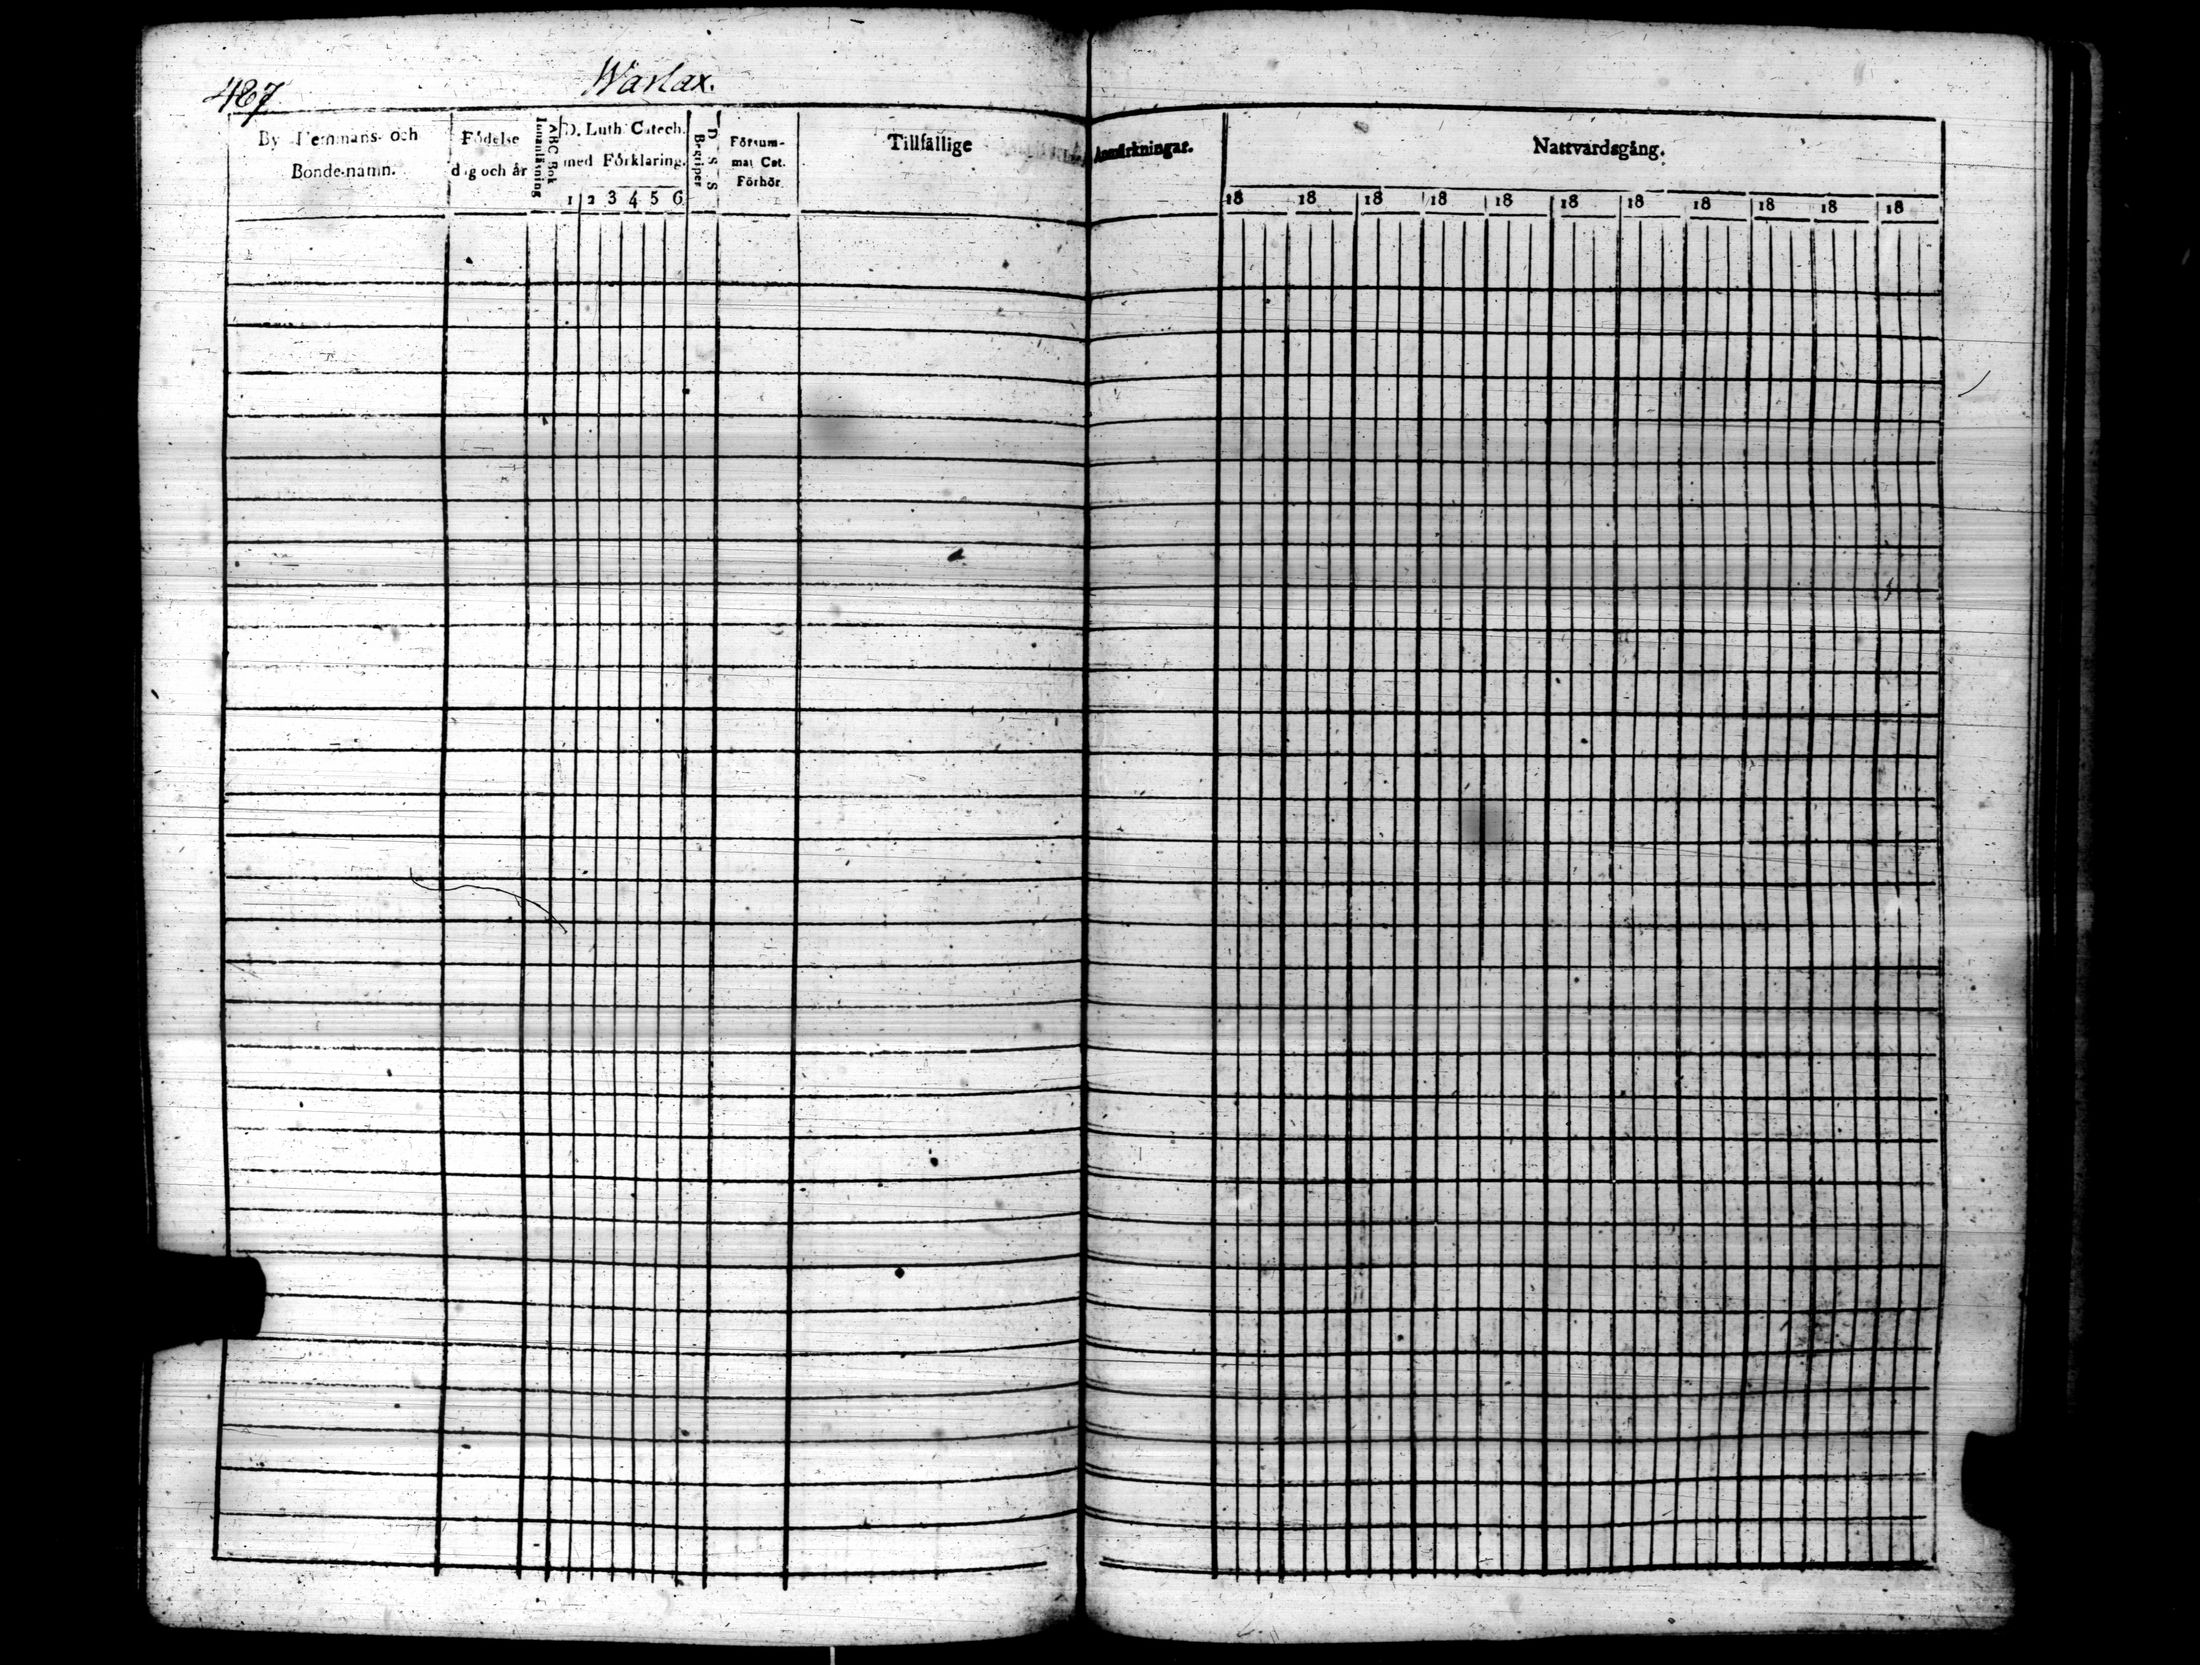 487
Warlax.
By Hemmans- och
Bonde-namn.
Födelse
dag och år
Innanläsning
ABC Bok
D. Luth. Catech.
med Förklaring.
1 2 3 4 5 6
Begriper
D. S. S.
Försum-
mat Cat.
Förhör
Tillfällige
Anmärkningar.
Nattvardsgång.
18 18 18 18 18 18 18 18 18 18 18